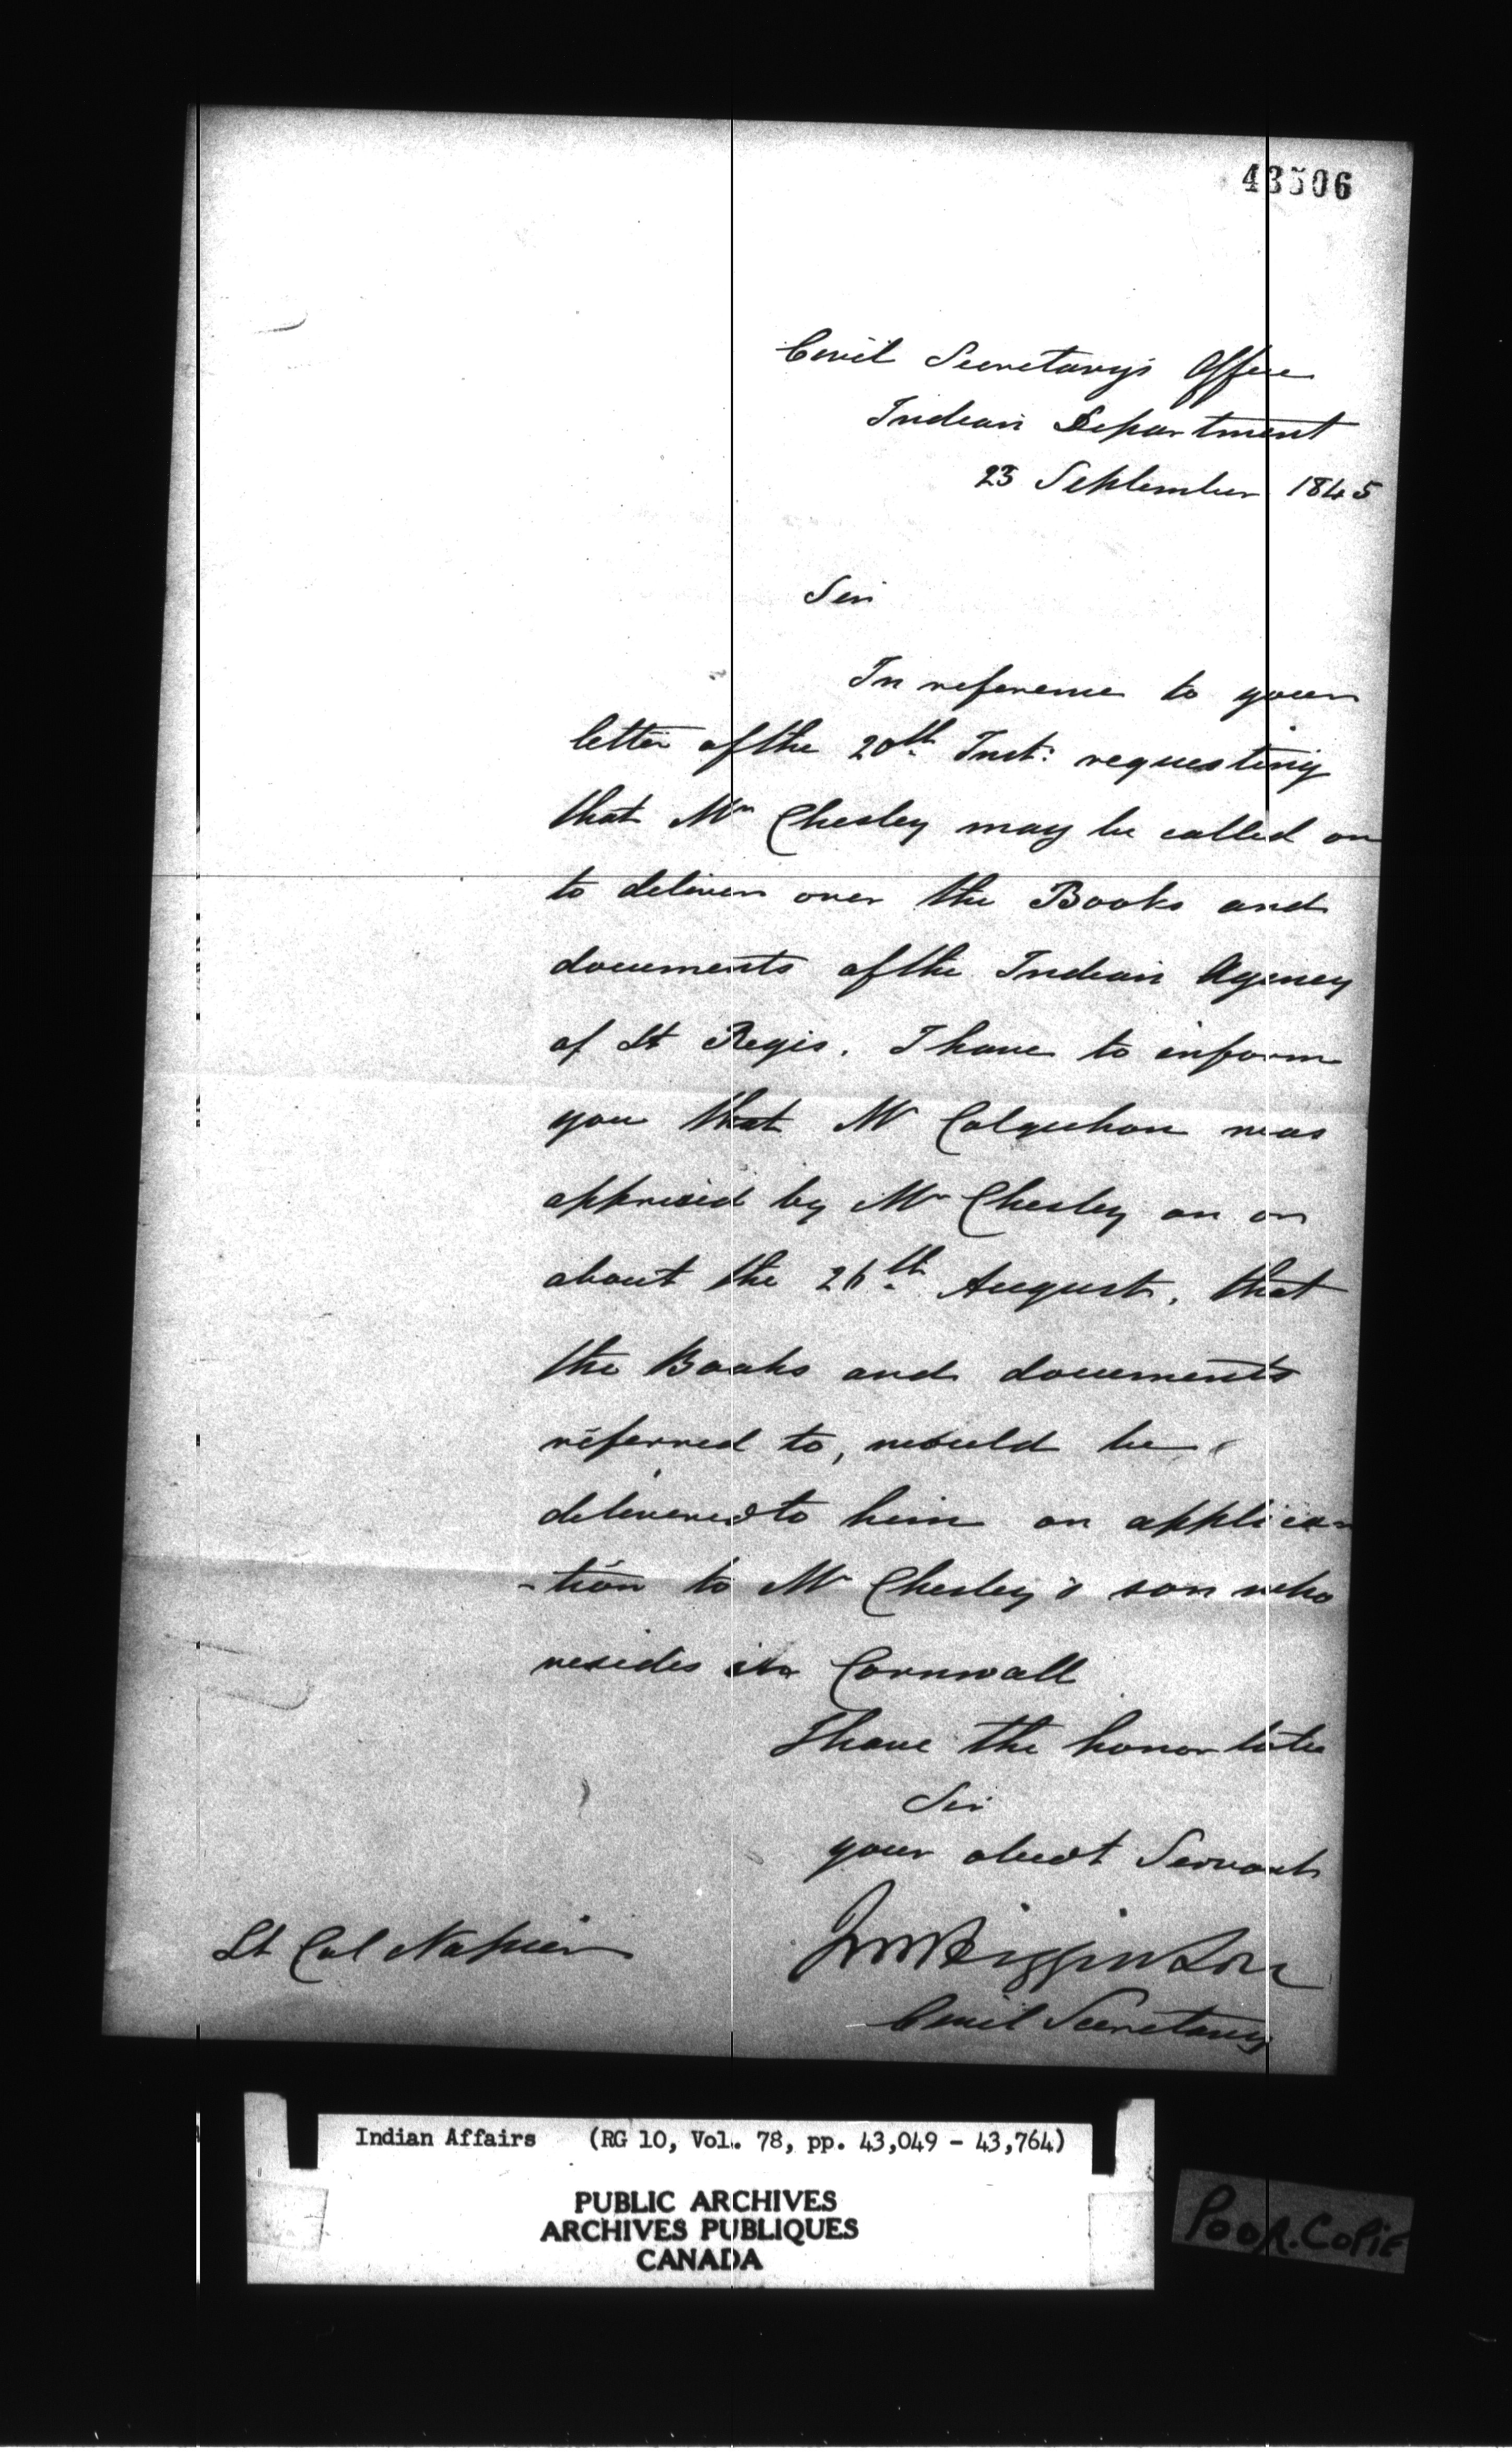 43506
Civil Secretary's Office
Indian Department
23 September 1845
Sir
In reference to your
letter of the 20th Inst: requesting
that Mr Chesley may be called on
to deliver over the Books and
documents of the Indian Agency
of St Regis. I have to inform
you that Mr Colquhon was
apprised by Mr Chesley on or
about the 26th August, that
the Books and documents
referred to, would be
delivered to him on applica-
-tion to Mr Chesley's son who
resides in Cornwall
I have the honor to be
Sir
your obedt Servant
JM Higginson
Civil Secretary
Lt Col Napier
Indian Affairs (RG 10, Vol. 78, pp. 43,049 - 43,764)
PUBLIC ARCHIVES
ARCHIVES PUBLIQUES
CANADA
POOR.COPIE